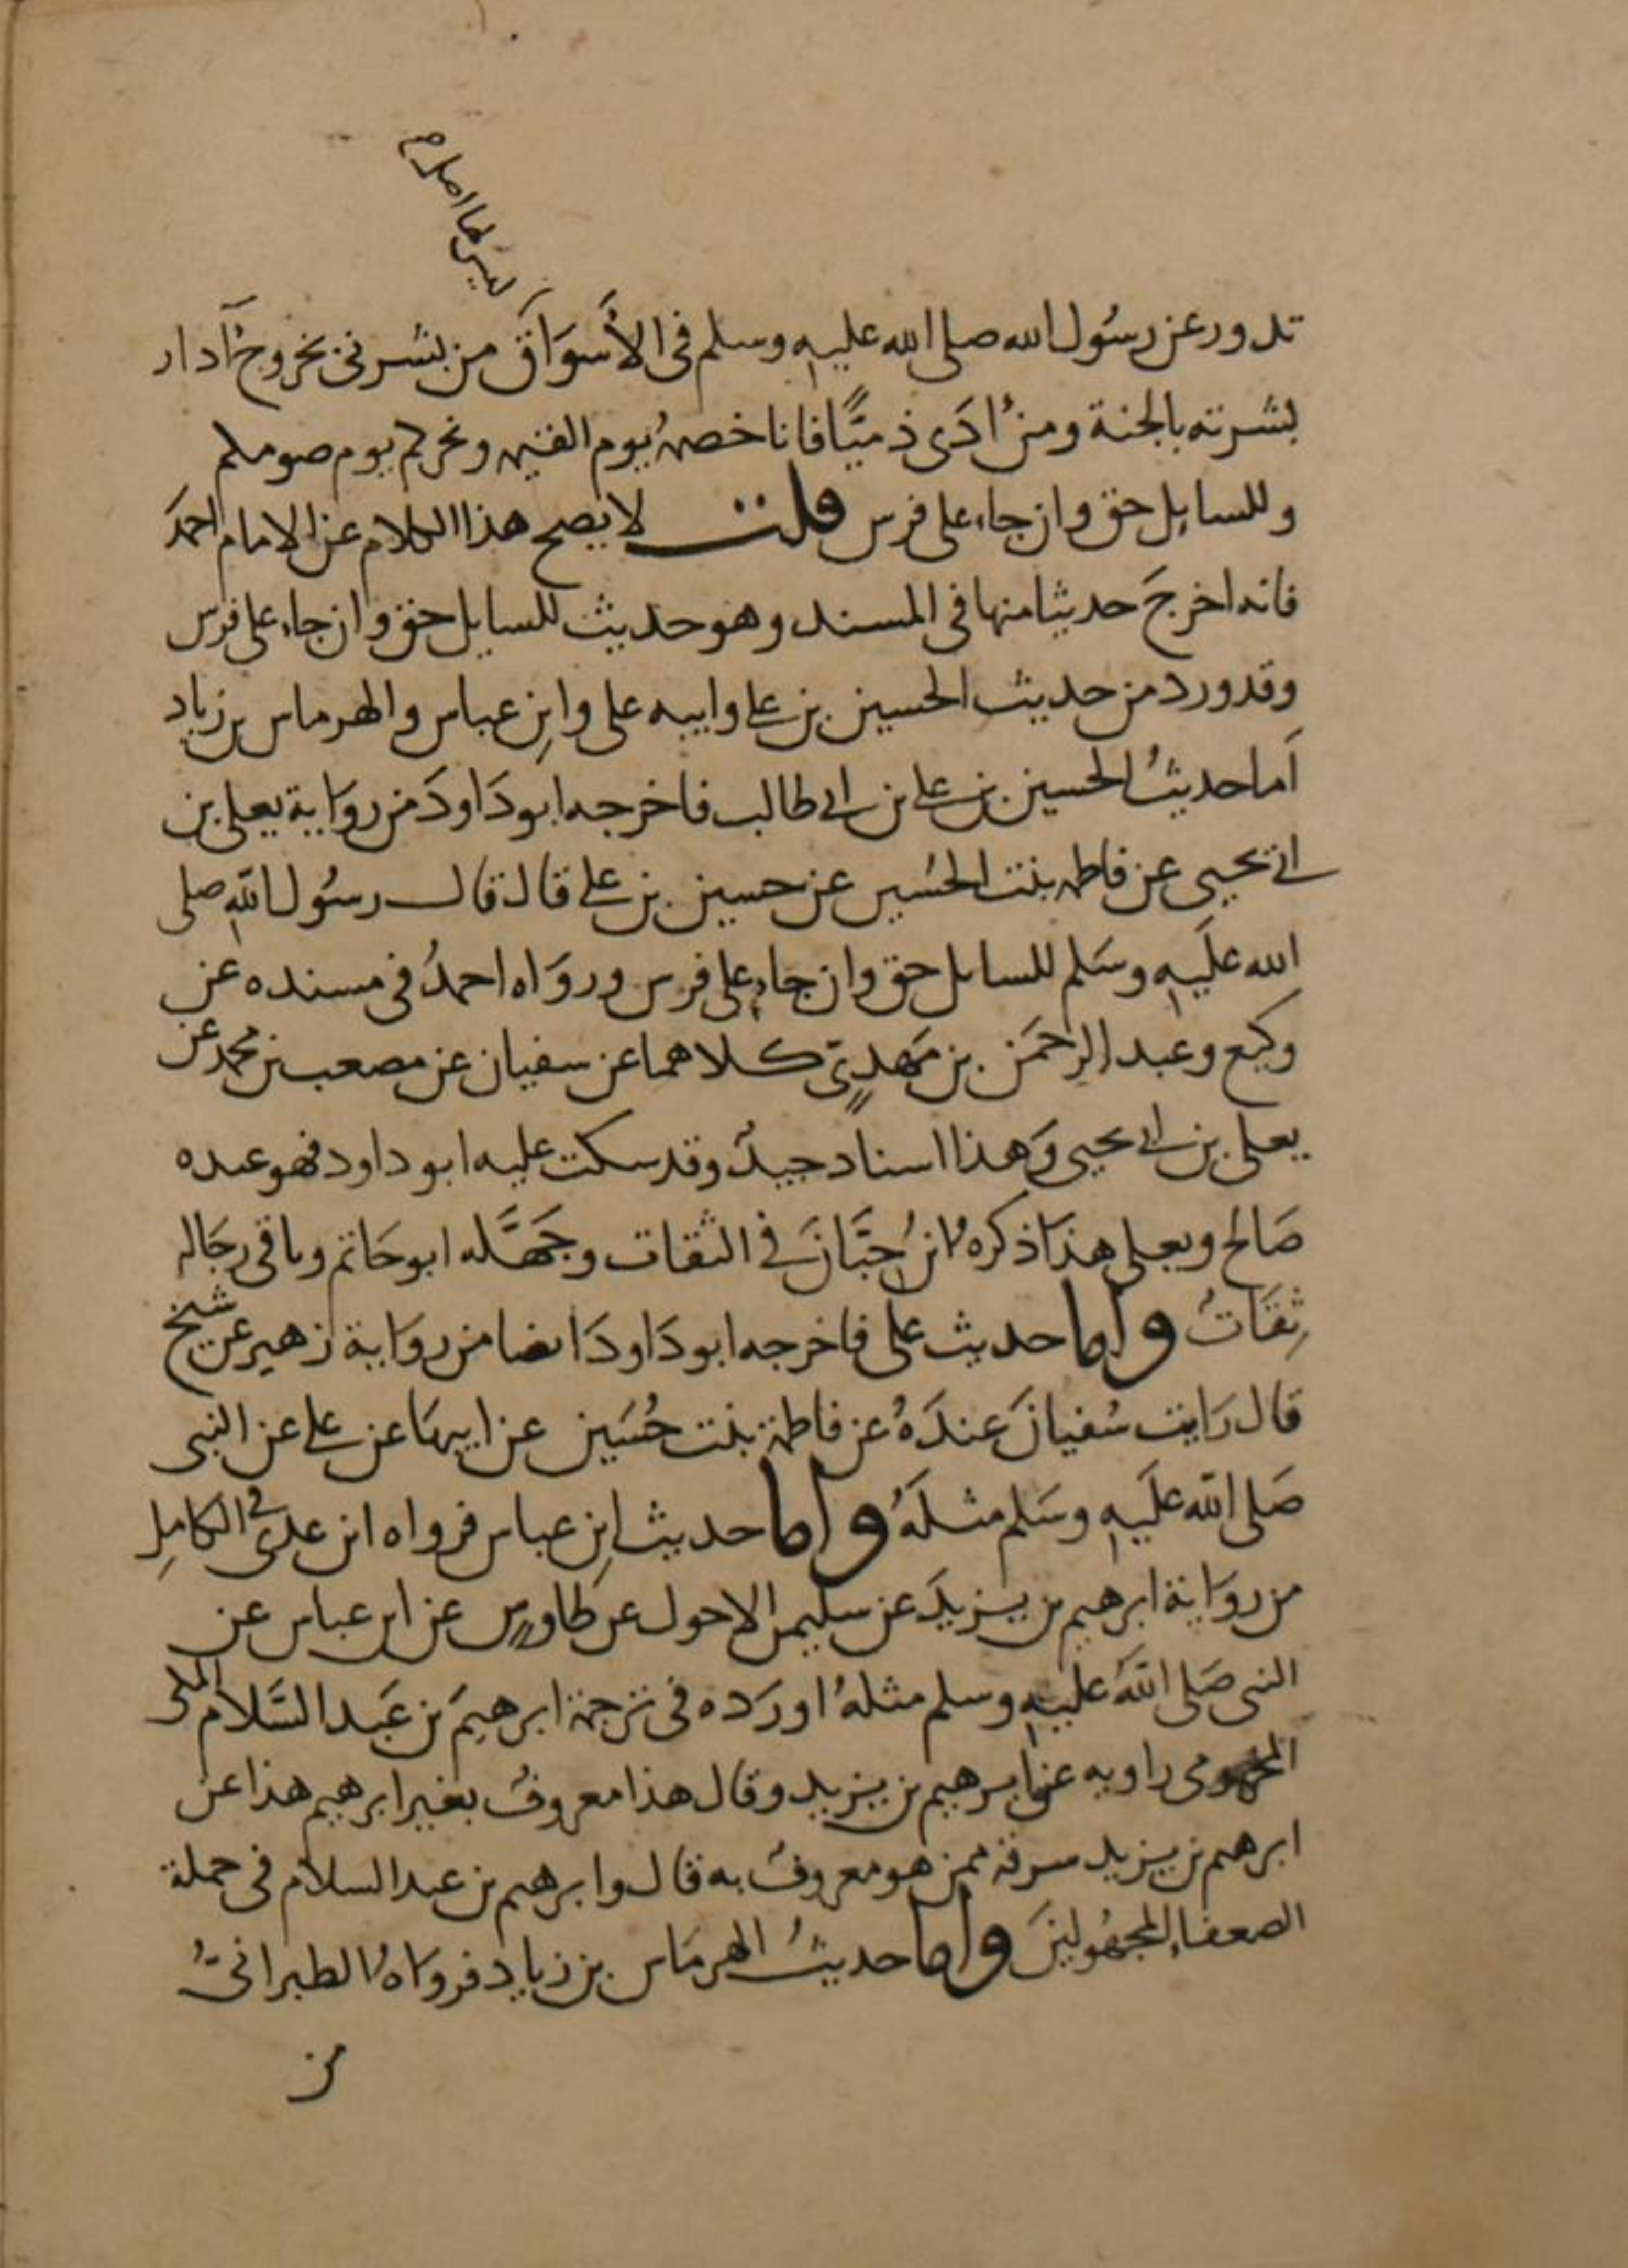 ليس لها اصل صح
تدور عن رسُول الله صلى الله عليه وسلم فى الأسوَاق من بشرنى بخروج آدار
بشرته بالجنة ومن اذى ذميًّا فانا خصمهُ يوم القيمه ونحركم يوم صومكم
وللسايل حق وان جاء على فرس قلت لا يصح هذا الكلام عن الامام احمد
فانه اخرجَ حديثا منها فى المسند وهو حديث للسايل حق وان جاء على فرس
وقد ورد من حديث الحسين بن على وابيه على وابن عباس والهرماس بن زياد
اَما حديثُ الحسين بن على بن ابى طالب فاخرجه ابو دَاودَ من روَاية يعلى بن
ابى يحيى عن فاطمه بنت الحسُين عن حسين بن على قال قال رسُول اللهِ صلى
الله علَيهِ وسَلم للسايل حق وان جاء على فرس وروَاه احمدُ فى مسنده عن
وكيع وعبد الرحمَن بن مَهدىٍّ كلاهما عن سفيان عن مصعب بن محمد عن
يعلى بن ابى يحيى وَهذا اسناد جيدٌ وقد سكت عليه ابو داود فهو عنده
صَالح ويعلى هذَا ذكره ابنُ حِبَّانَ فى الثقات وجَهَّله ابو حَاتم وباقى رجَاله
ثِقَاتُ واما حديث على فاخرجه ابو دَاودَ ايضا من روَاية زهير عن شيخ
قال رَايت سُفيانَ عندَهُ عن فاطمة بنت حُسَين عن ابيهَا عن على عن النبى
صَلى الله علَيهِ وسَلم مثلَهُ واما حديث ابن عباس فرواه ابن عدى فى الكامِل
من روَاية ابرهيم بن يزيدَ عن سليمن الاحول عن طَاوس عن ابن عباس عن
النبى صَلى اللهُ عليهِ وسلم مثلهُ اورَده فى ترجمة ابرهيمَ بن عَبد السَّلام المكى
المخزومى راويه عن ابرهيم بن يزيد وقال هذا معروفُ بغير ابرهيم هذا عن
ابرهيم بن يزيد سرقه ممن هو معروف به قال وابرهيم بن عبد السلام فى جملة
الضعفاء المجهُولينَ واما حديثُ الهرمَاس بن زياد فروَاهُ الطبرانىُّ
من